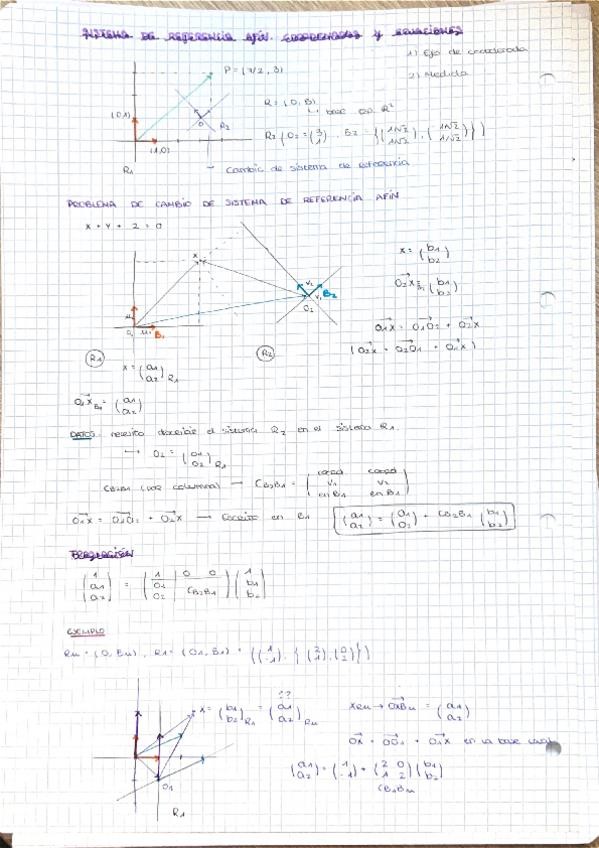 SISTEMA DE REFERENCIA AFÍN. COORDENADAS Y ECUACIONES
1) Eje de coordenada
2) Medida
P = (7/2, 3)
(0,1)
(1,0)
R1
O
R2
R = (O, B)
↳ base on R²
R2 {O2 = (3 1), B2 = {(1/√2 1/√2), (-1/√2 1/√2)}}
→ Cambio de sistema de referencia
PROBLEMA DE CAMBIO DE SISTEMA DE REFERENCIA AFÍN
x + y + 2 = 0
x
V2
B2
V1
O2
μ2
O1 μ1 B1
R1
R2
x = (b1 b2)
O2X B2 = (b1 b2)
O1X = O1O2 + O2X
(O2X = O2O1 + O1X)
x = (a1 a2) R1
O1X B1 = (a1 a2)
DATOS: necesito describir el sistema R2 en el sistema R1.
→ O2 = (O1 O2) R1
CB2B1 (por columna) → CB2B1 = (coord v1 en B1 coord v2 en B1)
O1X = O1O2 + O2X → Escrito en B1
(a1 a2) = (O1 O2) + CB2B1 (b1 b2)
(1 a1 a2) = (1 0 0 O1 O2 CB2B1) (1 b1 b2)
EJEMPLO
Rm = (O, Bm), R1 = (O1, B1) = {(1 -1), {(2 1), (0 2)}}
x = (b1 b2) R1 = (a1 a2) Rm
??
O1
R1
X Rm → OX Bm = (a1 a2)
OX = OO1 + O1X en la base
(a1 a2) = (1 -1) + (2 0 1 2) (b1 b2)
CB1Bm